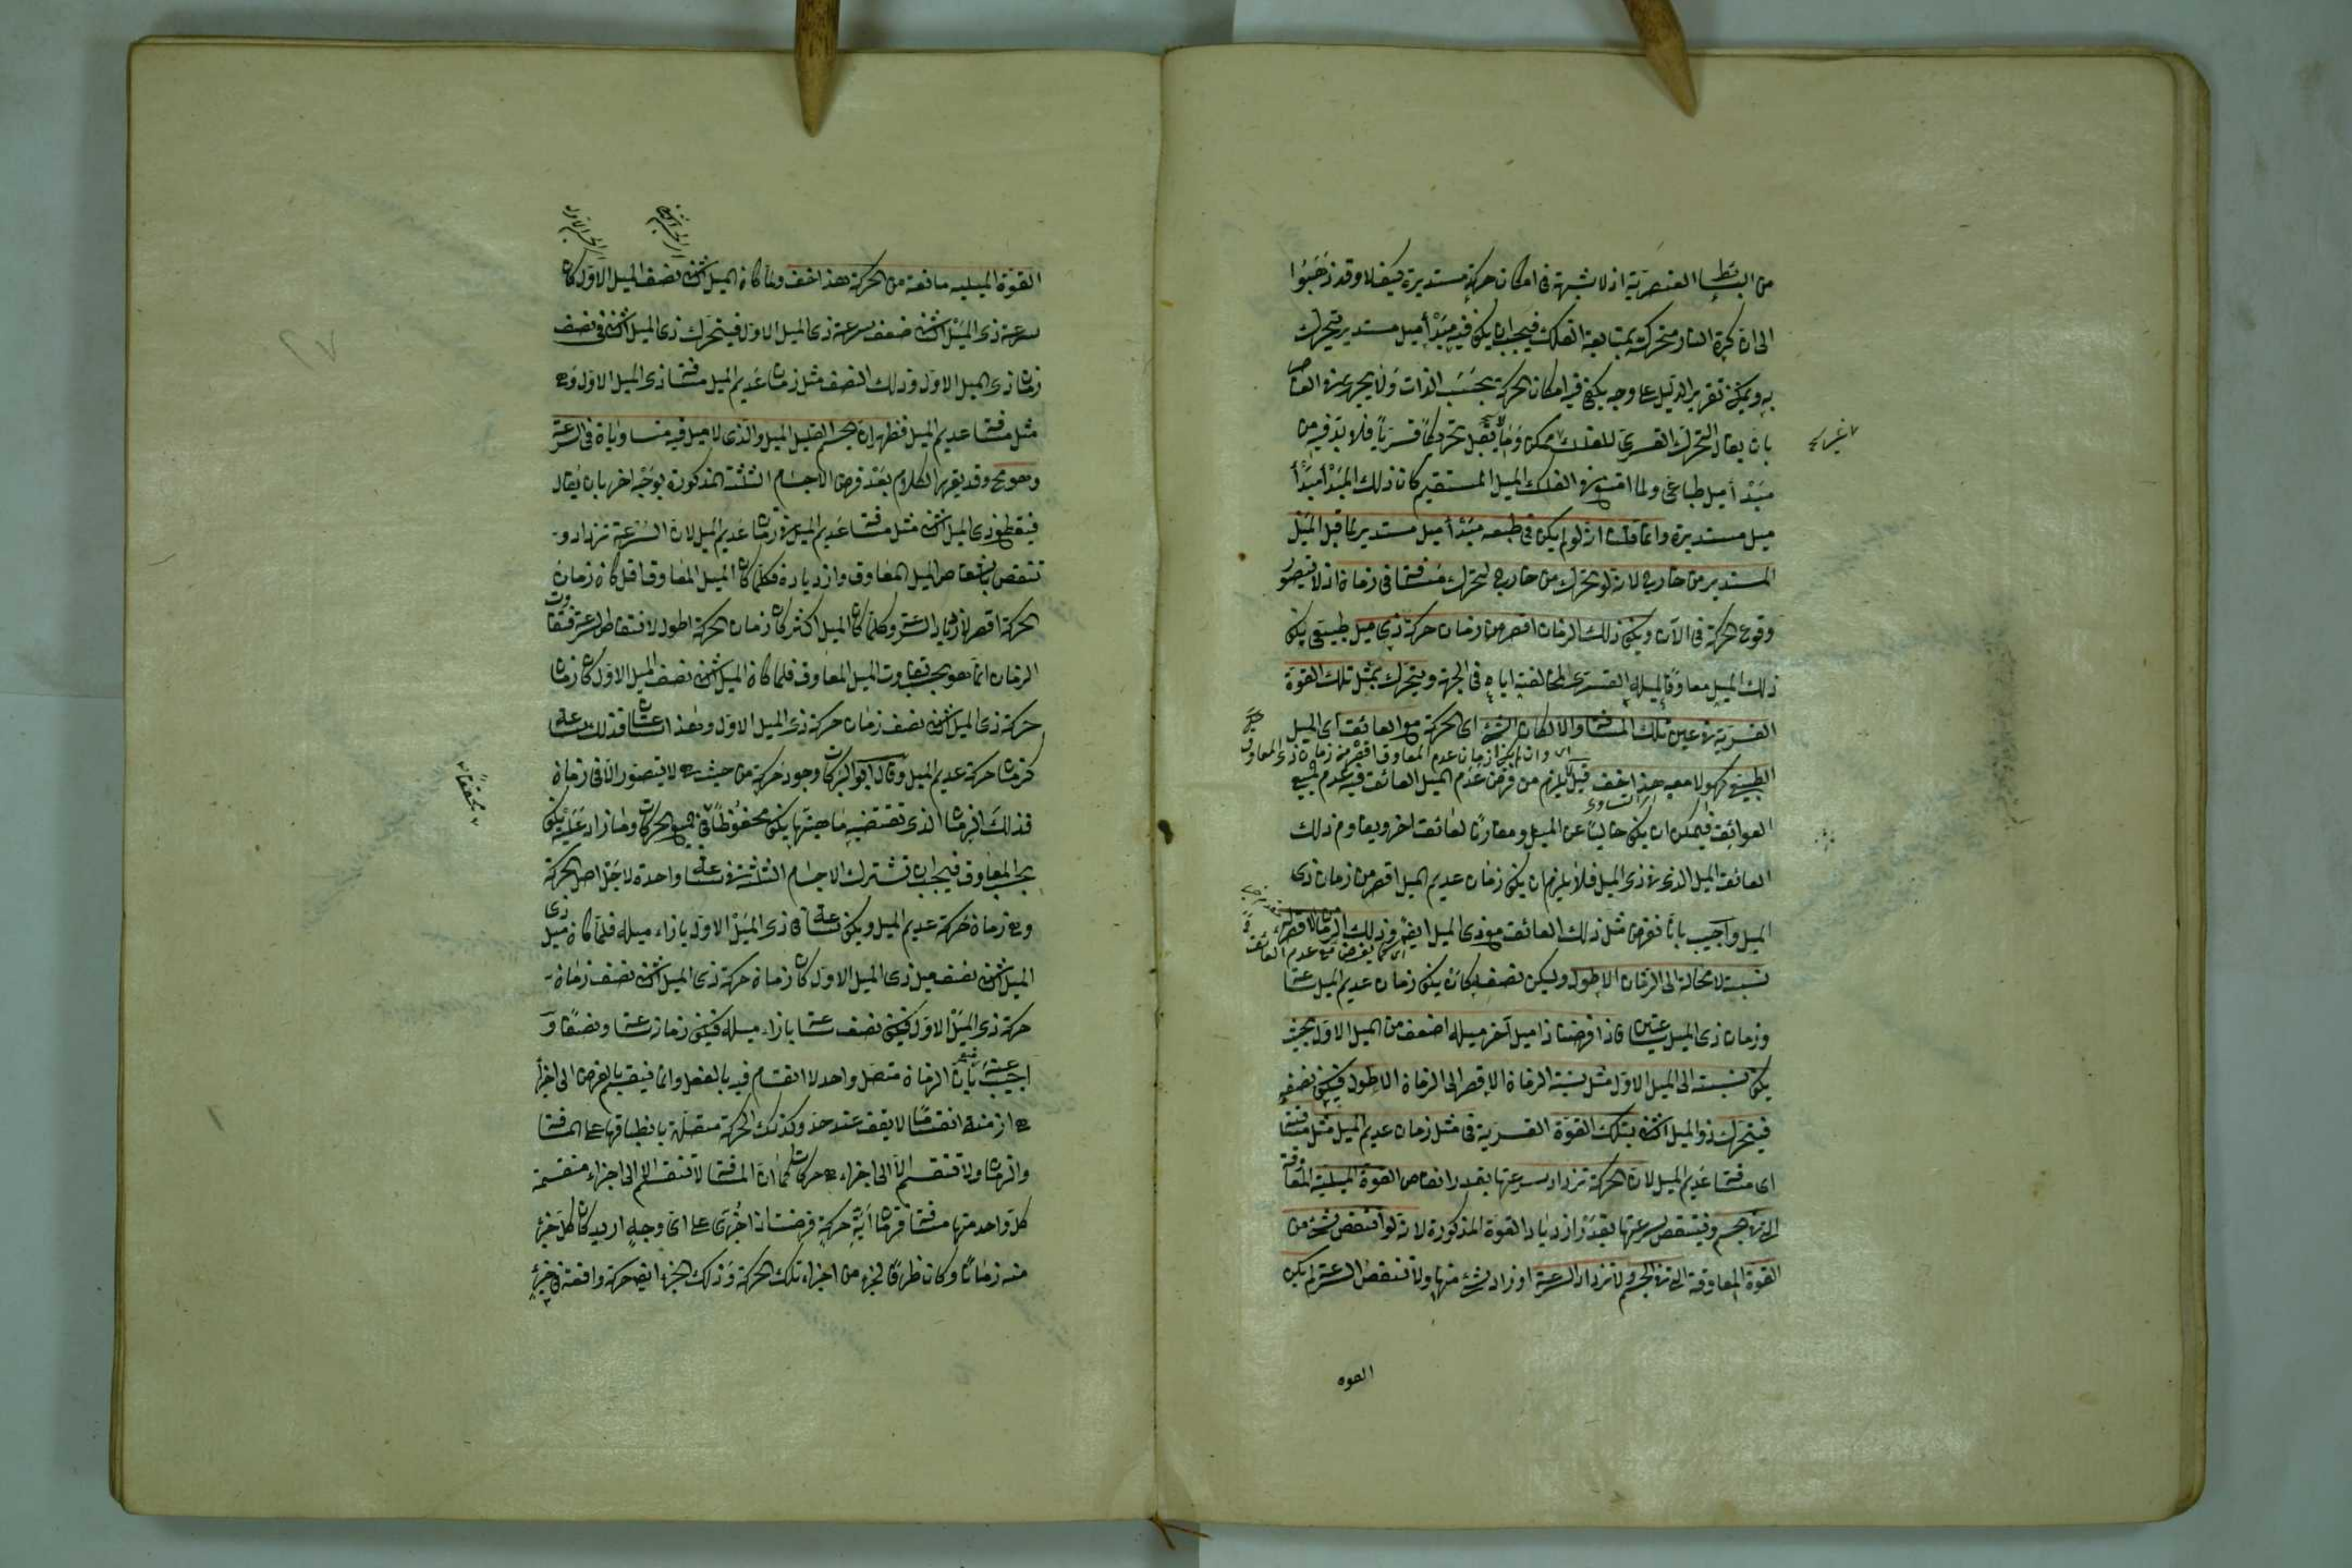 من البسائط العنصرية اذ لا شبهة فى امكان حركة مستديرة كيف لا وقد ذهبوا
الى ان كرة النار متحركة بمتابعة الفلك فيجب ان يكون فيه مبدأ ميل مستدير يتحرك
به ويمكن تقرير الدليل على وجه يكفى فيه امكان الحركة بحسب الذات ولا يجرى عن العناصر
بان يقال التحرك القسرى للفلك ممكن وما يقبل تحركا قسريا فلا بد فيه من
مبدأ ميل طباعى ولما امتنع فى الفلك الميل المستقيم كان ذلك المبدأ مبدأ
ميل مستديرة وانما قلنا انه لو لم يكن فى طبعه مبدأ ميل مستدير لما قبل الميل
المستدير من خارج لانه لو تحرك من خارج لتحرك مسافة فى زمان اذ لا يتصور
وقوع الحركة فى الآن ويكون ذلك الزمان اقصر من زمان حركة ذى ميل طبيعى يكون
ذلك الميل معاوقا لميله القسرى لمخالفته اياه فى الجهة ويتحرك بمثل تلك القوة
القسرية فى عين تلك المسافة والا لكان الشئ اى الحركة مع العائق اى الميل
اى وان لم يكن زمان عدم المعاوق اقصر من زمان ذى المعاوق
الطبيعى كهو لا معه هذا خلف قيل لا يلزم من فرض عدم الميل العائق فيه عدم جميع
العوائق فيمكن ان يكون خاليا عن الميل ومقارنا لعائق اخر ويقاوم ذلك
العائق الميل الذى فى ذى الميل فلا يلزم ان يكون زمان عديم الميل اقصر من زمان ذى
الميل واجيب بانا نفرض مثل ذلك العائق مع ذى الميل ايضا وذلك الزمان الاقصر له
نسبة لا محالة الى الزمان الاطول وليكن نصفه كأن يكون زمان عديم الميل ساعة
وزمان ذى الميل ساعتين فاذا فرضنا ذا ميل آخر ميله اضعف من الميل الاول بحيث
يكون نسبته الى الميل الاول مثل نسبة الزمان الاقصر الى الزمان الاطول فيكون نصفه
فيتحرك ذو الميل الثانى بتلك القوة القسرية فى مثل زمان عديم الميل مثل مسافته
اى مسافة عديم الميل لان الحركة تزداد سرعتها بقدر انتقاص القوة الميلية المعاوقة
التى فى الجسم وينتقص سرعتها بقدر ازدياد القوة المذكورة لانه لو انتقص شئ من
القوة المعاوقة التى فى الجسم ولا تزداد السرعة او زاد شئ منها ولا تنتقص السرعة لم يكن
القوه
القوة الميلية مانعة من الحركة هذا خلف ولما كان الميل الثانى نصف الميل الاول كان
سرعة ذى الميل الثانى ضعف سرعة ذى الميل الاول فيتحرك ذى الميل الثانى فى نصف
زمان ذى الميل الاول وذلك النصف مثل زمان عديم الميل مسافة ذى الميل الاول وهى
مثل مسافة عديم الميل فظهر ان الجسم القليل الميل والذى لا ميل فيه متساويان فى السرعة
وهو مح وقد يقرر الكلام بعد فرض الاجسام الثلثة المذكورة بوجه اخر بان يقال
فيقطع ذى الميل الثانى مثل مسافة عديم الميل فى زمان عديم الميل لان السرعة تزداد و
تنتقص بانتقاص الميل المعاوق وازدياده فكلما كان الميل المعاوق اقل كان زمان
الحركة اقصر لازدياد السرعة وكلما كان الميل اكثر كان زمان الحركة اطول لانتقاص السرعة فتفاوت
الزمان انما هو بحسب تفاوت الميل المعاوق فلما كان الميل الثانى نصف الميل الاول كان زمان
حركة ذى الميل الثانى نصف زمان حركة ذى الميل الاول وهذا ساعتان فذلك ساعة
كزمان حركة عديم الميل وقال ابو البركات وجود حركة من حيث هى لا يتصور الا فى زمان
فذلك الزمان الذى تقتضيه ماهيتها يكون محفوظا فى جميع الحركات وما زاد عليه يكون
بحسب المعاوق فيجب ان تشترك الاجسام الثلثة فى ساعة واحدة لاجل اصل الحركة
وهى زمان حركة عديم الميل ويكون ساعة فى ذى الميل الاول بازاء ميله فلما كان ميل ذى
الميل الثانى نصف ميل ذى الميل الاول كان زمان حركة ذى الميل الثانى نصف زمان
حركة ذى الميل الاول فيكون نصف ساعة بازاء ميله فيكون زمانه ساعة ونصفا و
اجيب عنه بان الزمان متصل واحد لا انقسام فيه بالفعل وانما ينقسم بالفرض الى اجزاء
هى ازمنة انقساما لا يقف عند حد وكذلك الحركة متصلة بانطباقها على المسافة
والزمان ولا تنقسم الا الى اجزاء هى حركات كما ان المسافة لا تنقسم الا الى اجزاء منقسمة
كل واحد منها مسافة فزمان اية حركة فرضت اذا جزى على اى وجه اريد كان كل جزء
منه زمانا وكان ظرفا لجزء من اجزاء تلك الحركة وذلك الجزء ايضا حركة واقعة فى جزء